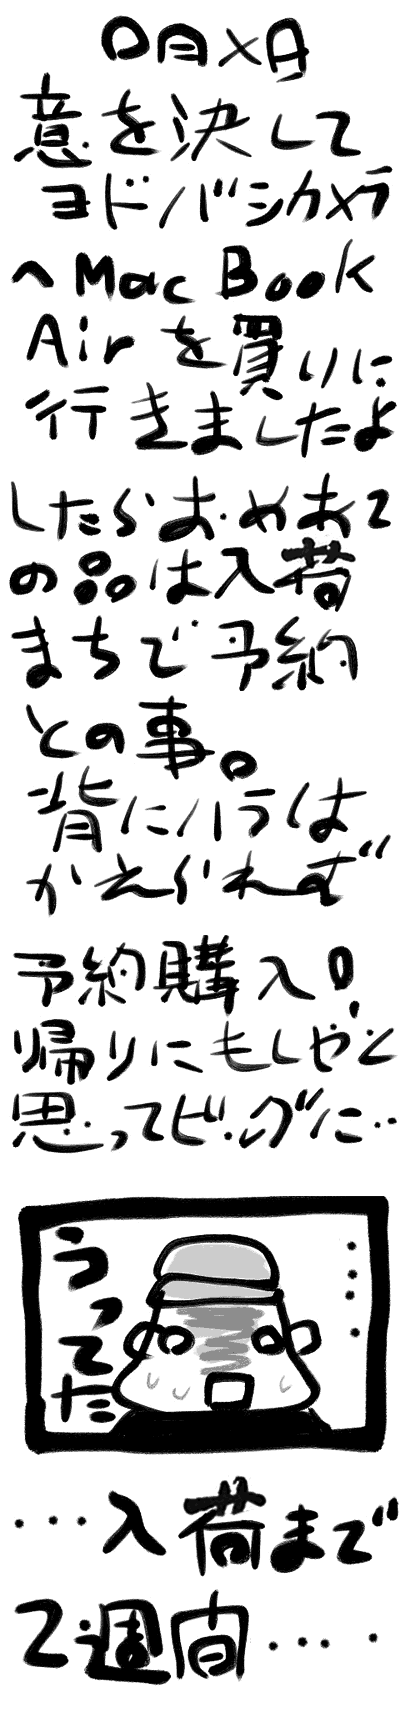 ○月×日
意を決して
ヨドバシカメラ
へMac Book
Airを買いに
行きましたよ
したらおめあて
の品は入荷
まちで予約
との事。
背にハラは
かえられず
予約購入!
帰りにもしやと
思ってビックに‥
うってた
‥‥
…入荷まで
2週間‥‥